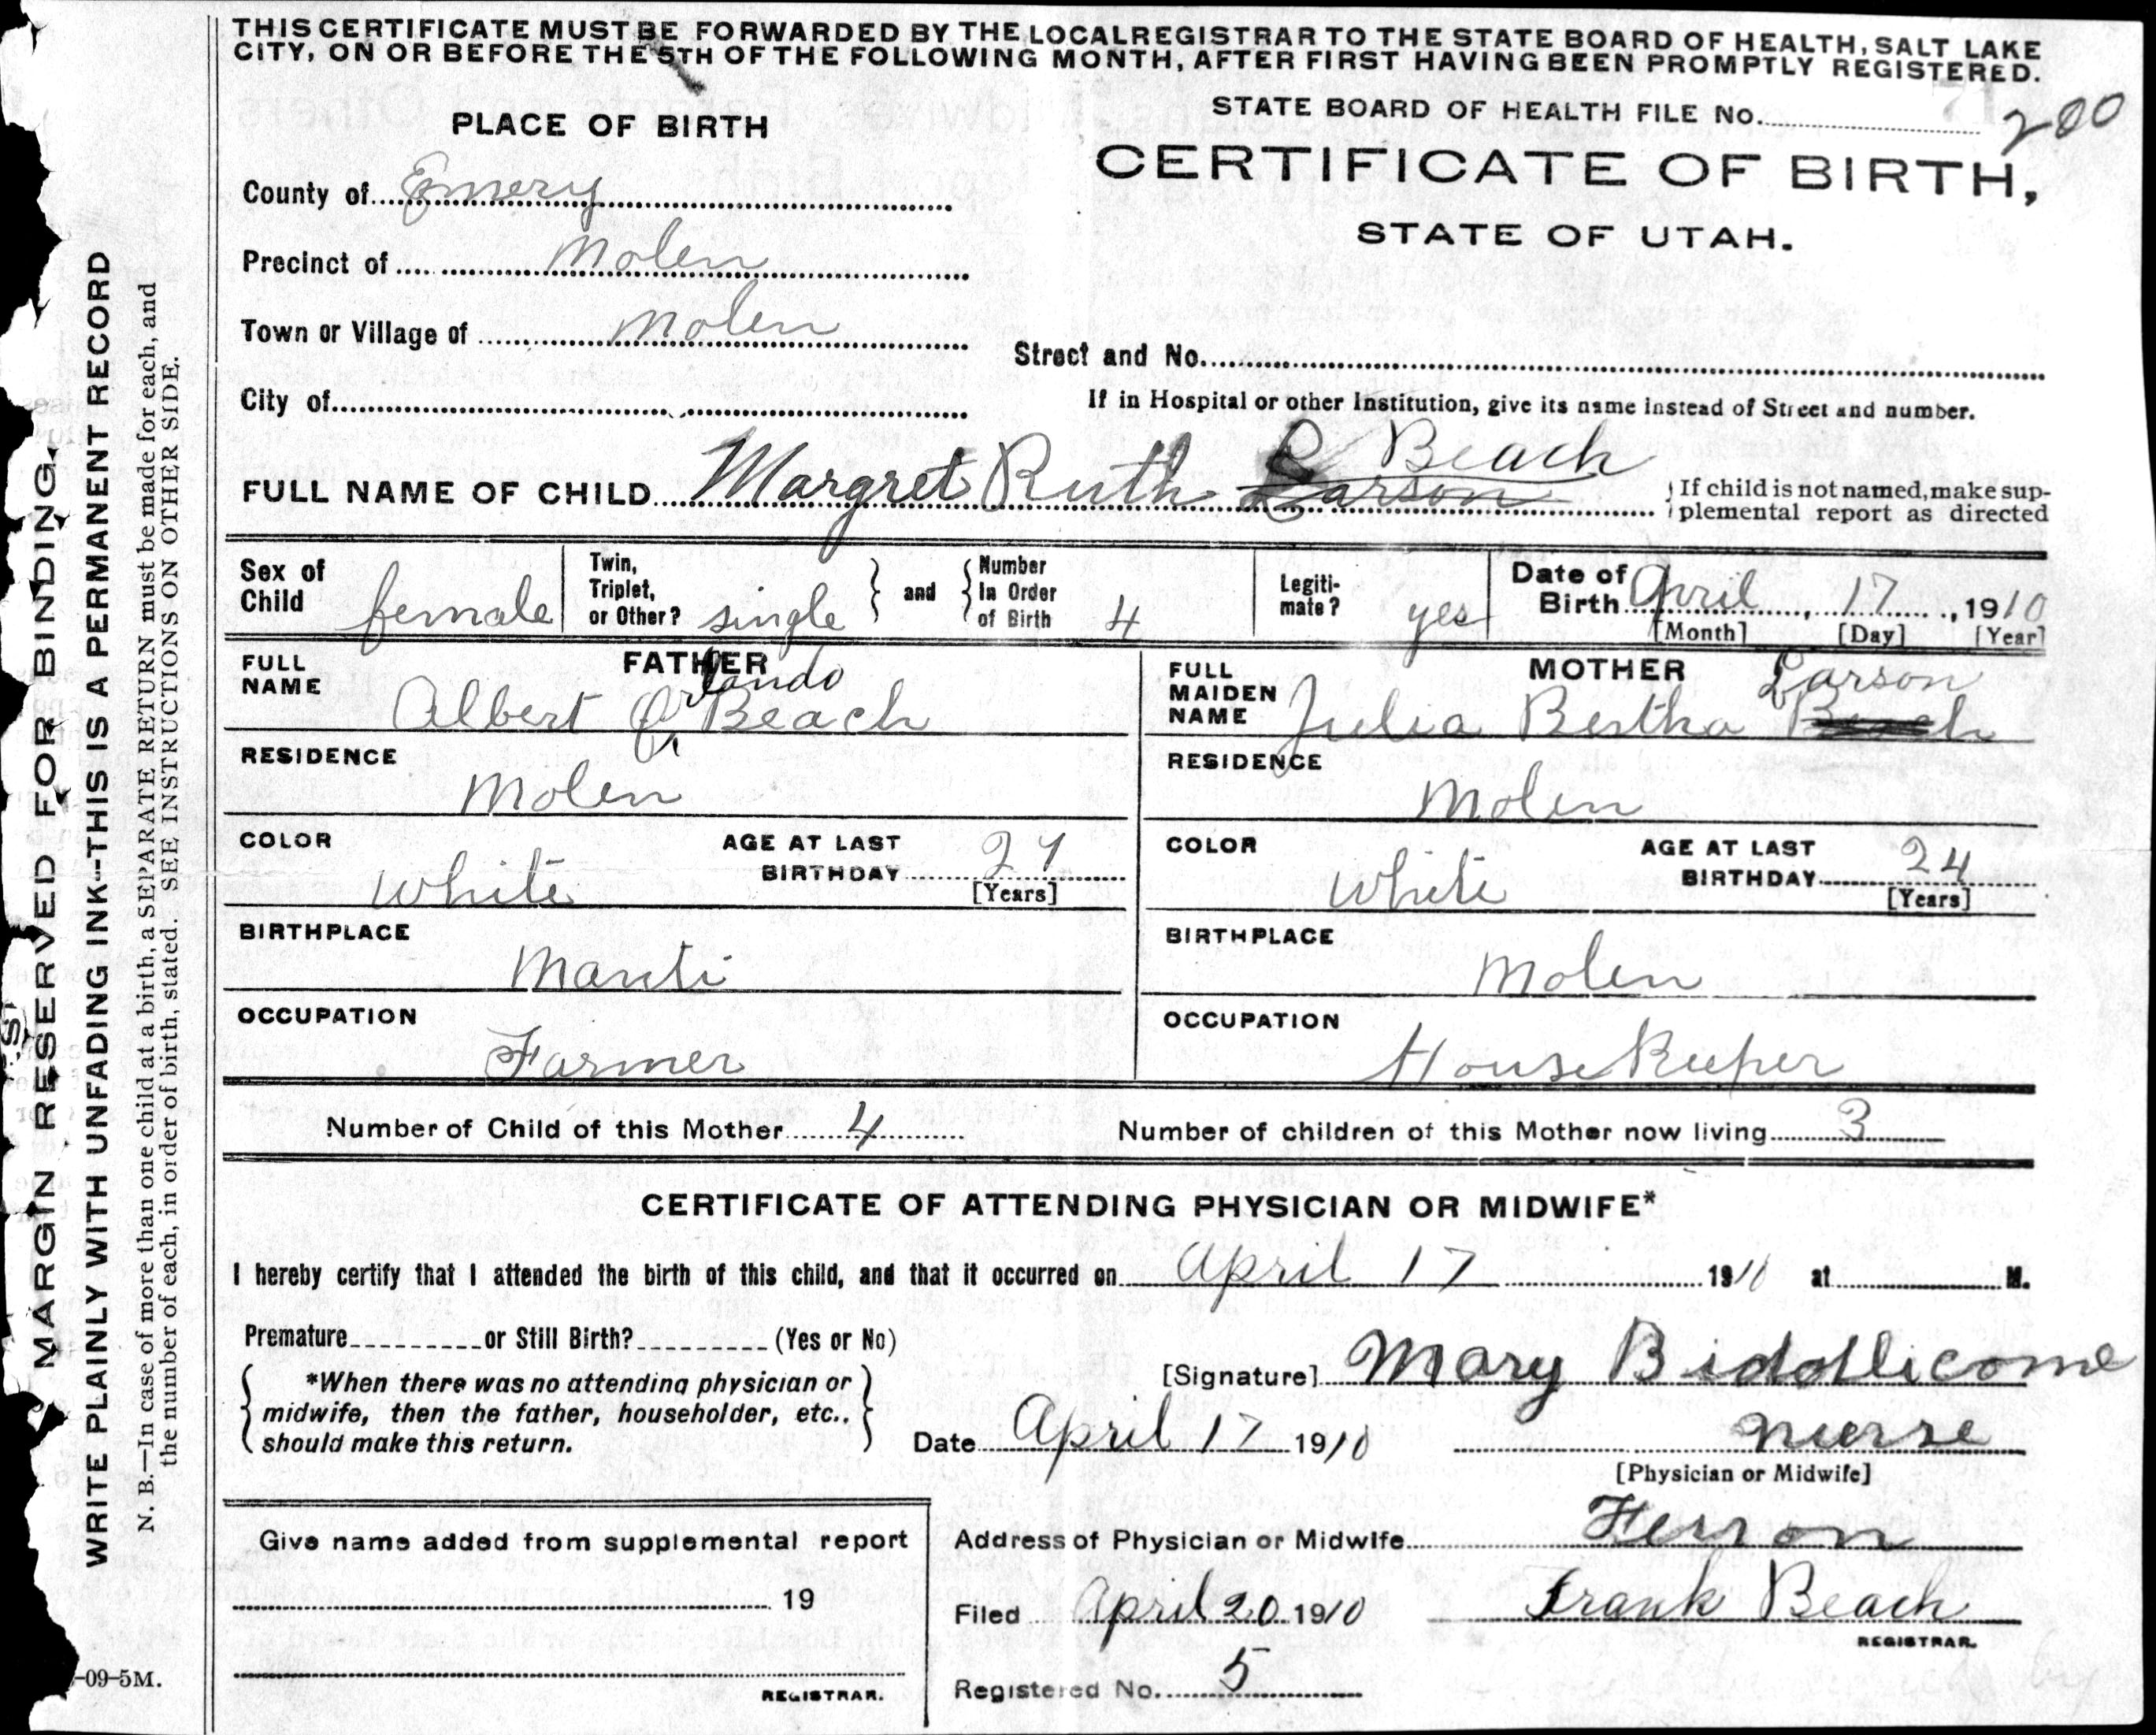 THIS CERTIFICATE MUST BE FORWARDED BY THE LOCAL REGISTRAR TO THE STATE BOARD OF HEALTH, SALT LAKE
CITY, ON OR BEFORE THE 5TH OF THE FOLLOWING MONTH, AFTER FIRST HAVING BEEN PROMPTLY REGISTERED.
STATE BOARD OF HEALTH FILE No. 200
PLACE OF BIRTH
CERTIFICATE OF BIRTH,
STATE OF UTAH.
County of Emery
Precinct of Molen
Town or Village of Molen
Street and No.
City of
If in Hospital or other Institution, give its name instead of Street and number.
FULL NAME OF CHILD Margret Ruth Larson Beach
If child is not named, make sup-
plemental report as directed
Sex of Child female
Twin, Triplet, or Other? single
and
Number In Order of Birth 4
Legiti-mate? yes
Date of Birth April 17, 1910
[Month] [Day] [Year]
FATHER
FULL NAME Albert Orlando Beach
RESIDENCE Molen
COLOR White
AGE AT LAST BIRTHDAY 27
[Years]
BIRTHPLACE Manti
OCCUPATION Farmer
MOTHER
FULL MAIDEN NAME Julia Bertha Beach Larson
RESIDENCE Molen
COLOR White
AGE AT LAST BIRTHDAY 24
[Years]
BIRTHPLACE Molen
OCCUPATION House Keeper
Number of Child of this Mother 4
Number of children of this Mother now living 3
CERTIFICATE OF ATTENDING PHYSICIAN OR MIDWIFE*
I hereby certify that I attended the birth of this child, and that it occurred on April 17 1910 at M.
Premature or Still Birth? (Yes or No)
*When there was no attending physician or
midwife, then the father, householder, etc.,
should make this return.
[Signature] Mary Biddlicome
Date April 17 1910
nurse
[Physician or Midwife]
Give name added from supplemental report
19
REGISTRAR.
Address of Physician or Midwife Ferron
Filed April 20 1910 Frank Beach
REGISTRAR.
Registered No. 5
MARGIN RESERVED FOR BINDING.
WRITE PLAINLY WITH UNFADING INK--THIS IS A PERMANENT RECORD
N. B.—In case of more than one child at a birth, a SEPARATE RETURN must be made for each, and
the number of each, in order of birth, stated. SEE INSTRUCTIONS ON OTHER SIDE.
-09-5M.